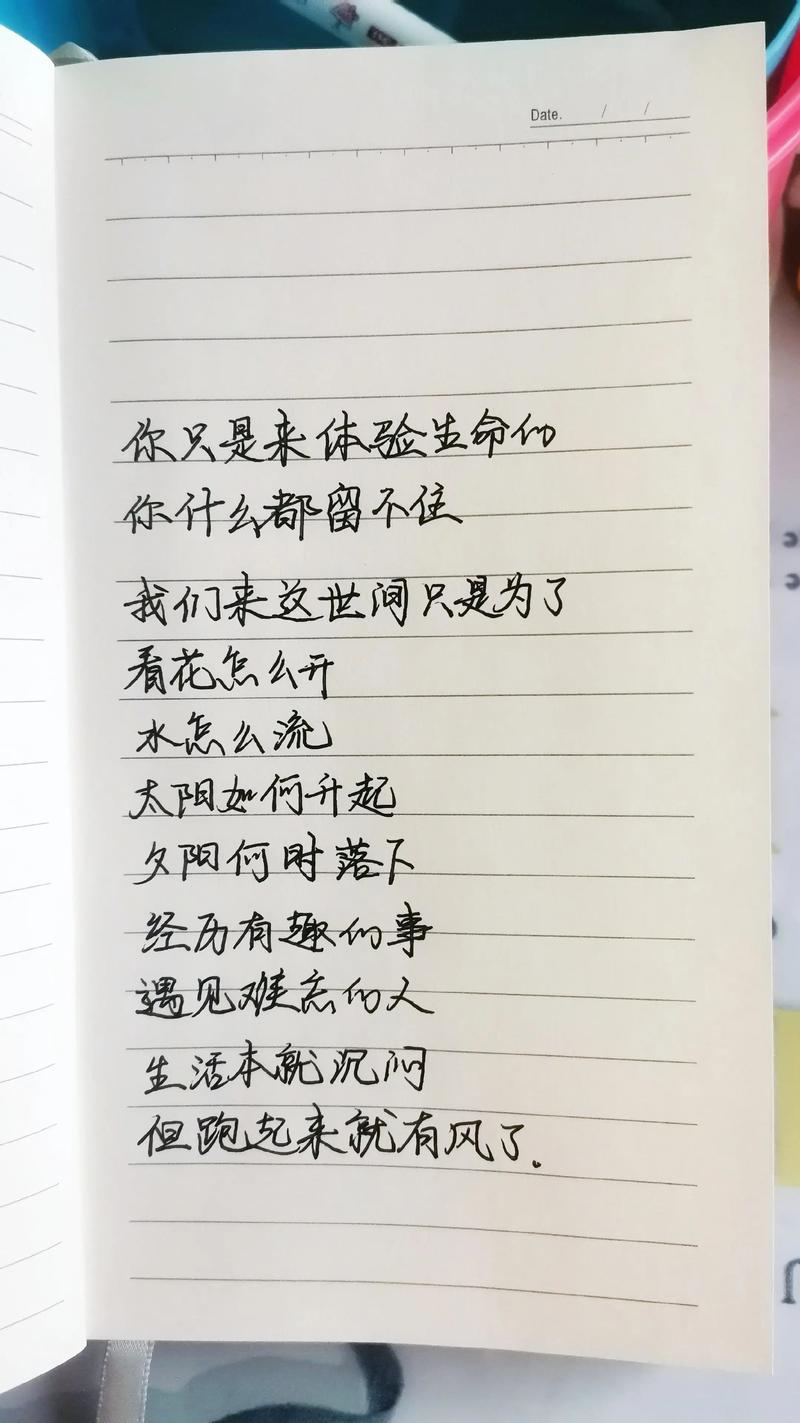 Date. / /
你只是来体验生命的
你什么都留不住
我们来这世间只是为了
看花怎么开
水怎么流
太阳如何升起
夕阳何时落下
经历有趣的事
遇见难忘的人
生活本就沉闷
但跑起来就有风了。